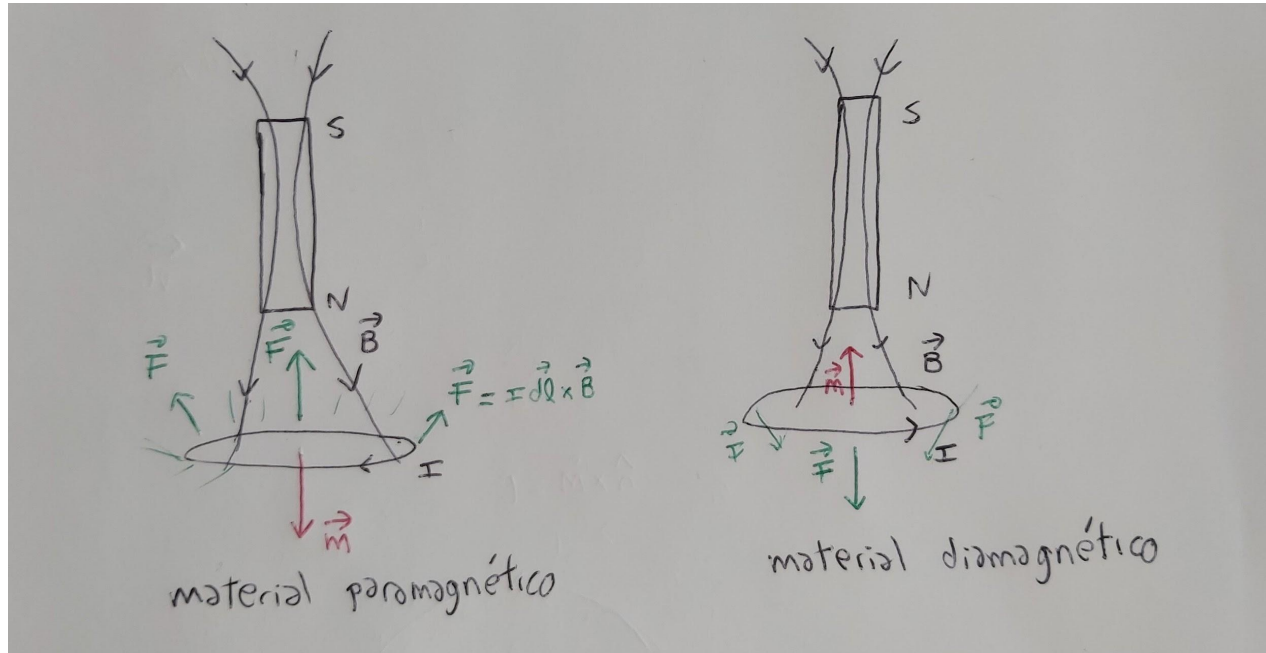 S
N
B⃗
F⃗
F⃗
F⃗ = I dl⃗ x B⃗
I
m⃗
material paramagnético
S
N
B⃗
m⃗
F⃗
F⃗
I
F⃗
material diamagnético